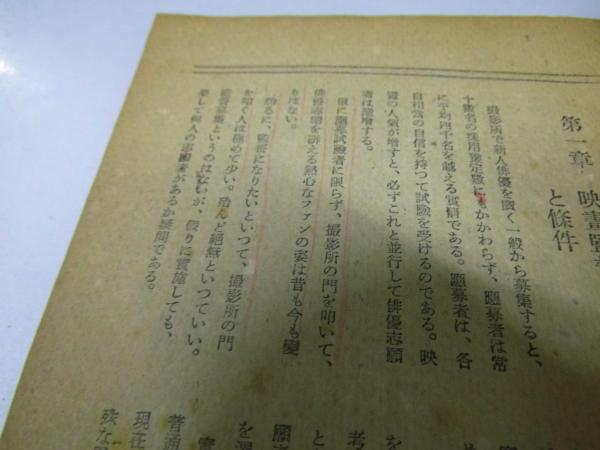 第一章 映畫監
と條件
撮影所で新人俳優を廣く一般から募集すると、
十數名の採用豫定數にもかかわらず、應募者は常
に平均四千名を越える實情である。應募者は、各
自相當の自信を持つて試驗を受けるのである。映
畫の人氣が增すと、必ずこれと並行して俳優志願
者は激增する。
單に應募試驗者に限らず、撮影所の門を叩いて、
俳優志望を訴える熱心なファンの姿は昔も今も變
りはない。
然るに、監督になりたいといつて、撮影所の門
を叩く人は極めて少い。殆んど絕無といつていい。
監督募集というのはないが、假りに實施しても、
果して何人の志願者があるか疑問である。
を
考
と
願
を
實
普通
現在
殊な